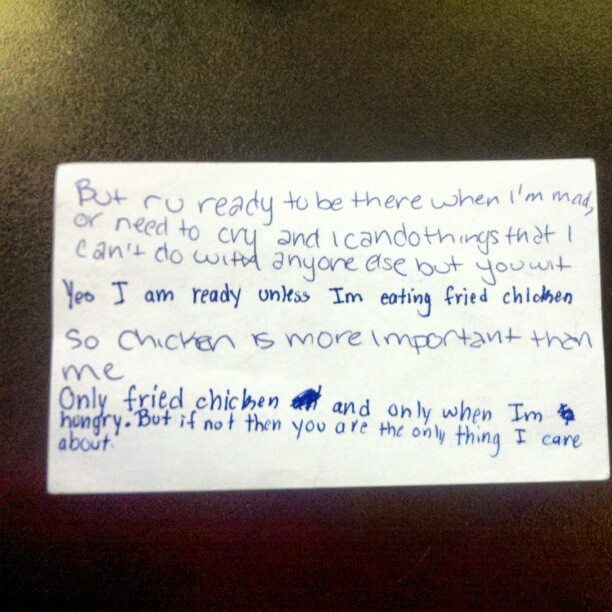 But r u ready to be there when I'm mad,
or need to cry and I can do things that I
can't do with anyone else but you
Yes I am ready unless Im eating fried chicken
So chicken is more important than
me
Only fried chicken and only when Im
hungry. But if not then you are the only thing I care
about.